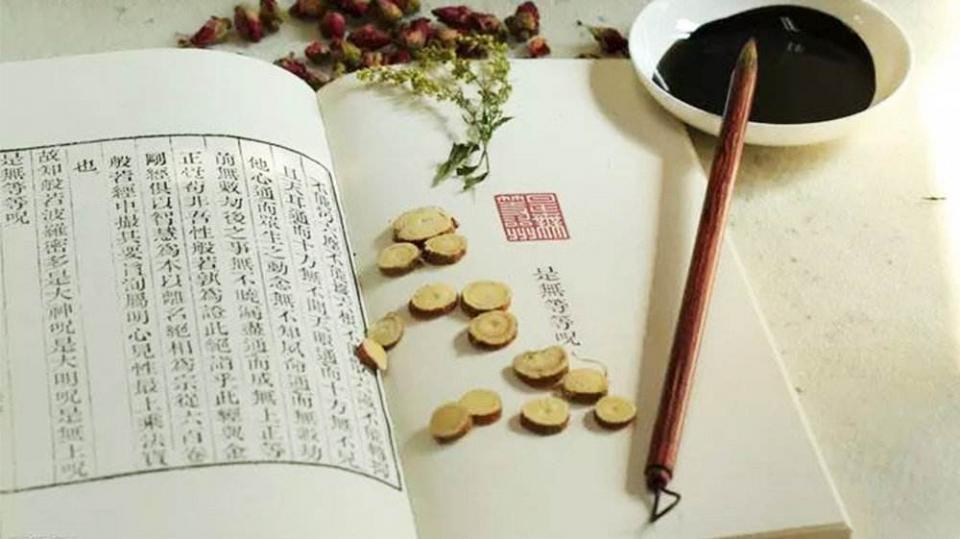 是無等等呪
且天耳通而十方無不聞天眼通而十方無不見
他心通而眾生之動念無不知夙命通而無數劫
前無數劫後之事無不曉漏盡通而成無上正等
正覺苟非吾性般若孰為證此絕詣乎此經與金
剛經俱以智慧為本以離名絕相為宗從六百卷
般若經中撮其要言洵屬明心見性最上乘法寶
也
故知般若波羅密多是大神呪是大明呪是無上呪
是無等等呪